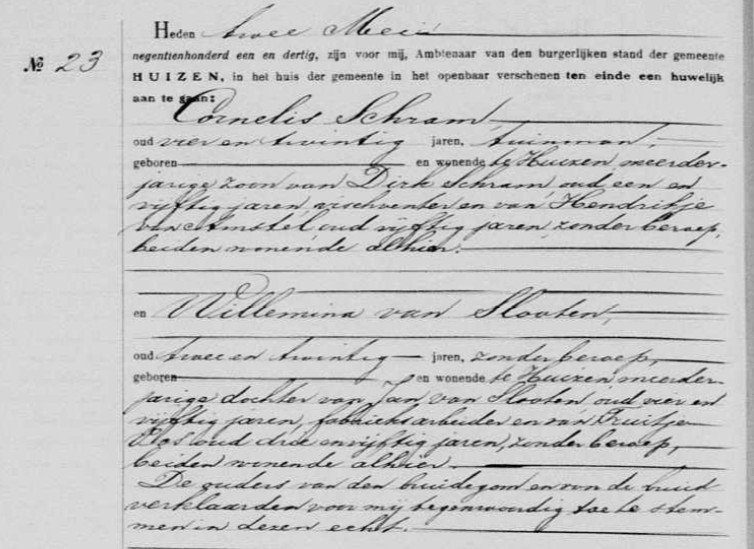 Heden twee Mei
№ 23 negentienhonderd een en dertig, zijn voor mij, Ambtenaar van den burgerlijken stand der gemeente
HUIZEN, in het huis der gemeente in het openbaar verschenen ten einde een huwelijk
aan te gaan:
Cornelis Schram,
oud vier en twintig jaren, tuinman,
geboren en wonende te Huizen meerder-
jarige zoon van Dirk Schram oud een en
vijftig jaren, vischventer en van Hendrikje
van Amstel oud vijftig jaren, zonder beroep,
beiden wonende alhier.
en Willemina van Slooten,
oud twee en twintig jaren, zonder beroep,
geboren en wonende te Huizen meerder-
jarige dochter van Jan van Slooten oud vier en
vijftig jaren, fabrieksarbeider en van Fruitje
Vos oud drie en vijftig jaren, zonder beroep,
beiden wonende alhier.
De ouders van den bruidegom en van de bruid
verklaarden voor mij tegenwoordig toe te stem-
men in dezen echt.